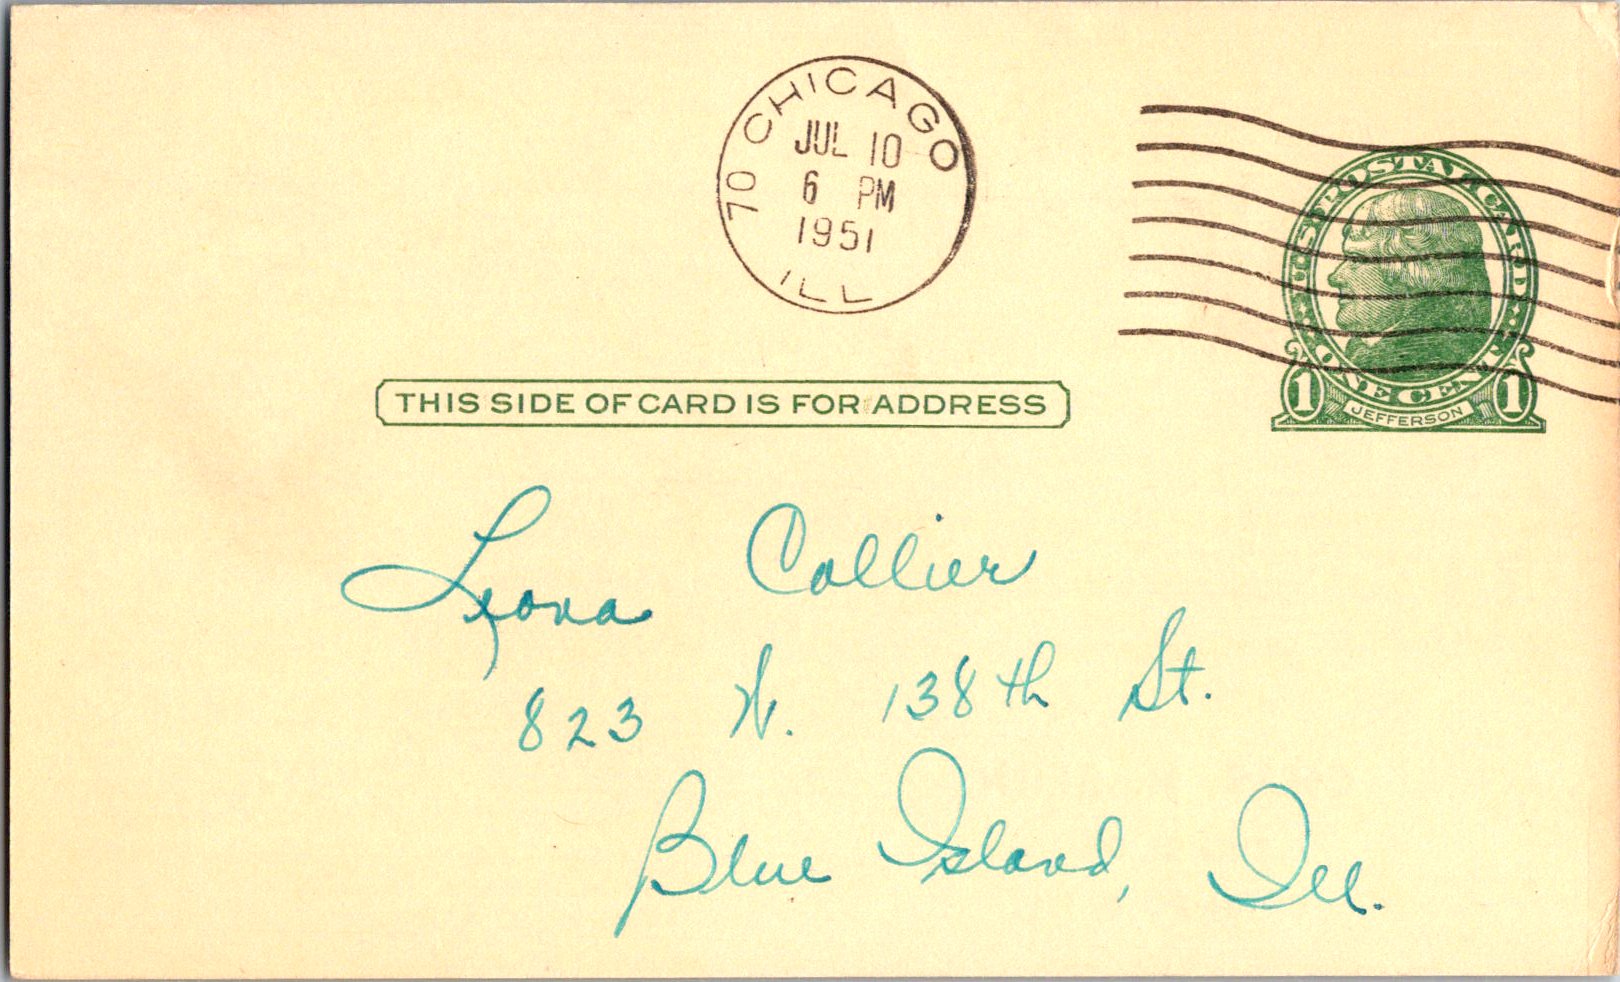 70 CHICAGO
JUL 10
6 PM
1951
ILL
U.S. POSTAL CARD
ONE CENT
1 JEFFERSON 1
THIS SIDE OF CARD IS FOR ADDRESS
Leona Collier
823 W. 138th St.
Blue Island, Ill.